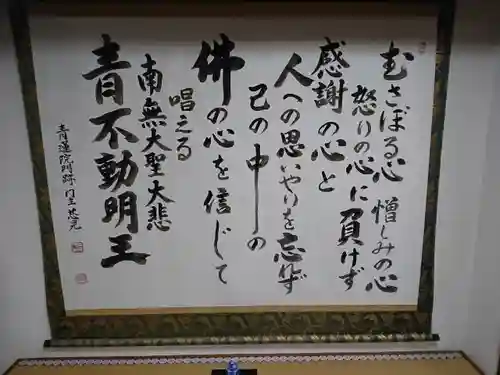 むさぼる心 憎しみの心
怒りの心に負けず
感謝の心と
人への思いやりを忘れず
己の中の
佛の心を信じて
唱える
南無大聖大悲
青不動明王
青蓮院門跡門主慈晃